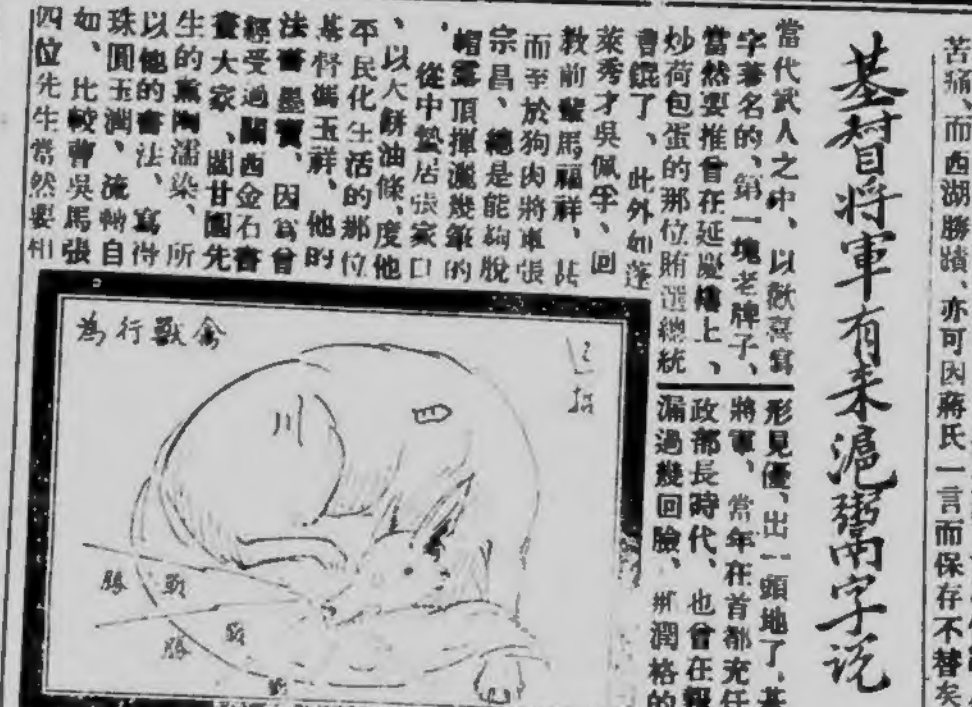 苦痛、而西湖勝蹟、亦可因蔣氏一言而保存不替矣
基督將軍有来滬鬻字说
當代武人之中、以歡喜寫
字著名的、第一塊老牌子、
當然要推曾在延慶樓上、
炒荷包蛋的那位賄選總統
曹錕了、此外如蓬
萊秀才吳佩孚、回
教前輩馬福祥、此
而至於狗肉將軍張
宗昌、總是能夠脫
帽露頂揮灑幾筆的
、從中蟄居張家口
、以大餅油條、度他
平民化生活的那位
基督馮玉祥、他的
法書墨寶、因爲曾
經受過關西金石書
畫大家、閻甘園先
生的薰陶濡染、所
以他的書法、寫得
珠圓玉潤、流暢自
如、比較曹吳馬張
四位先生當然要相
形見優、出一頭地了、基
將軍、當年在首都充任
政部長時代、也曾在報
漏過幾回臉、潤格的
禽獸行為
四
川
戰
勝
戰
勝